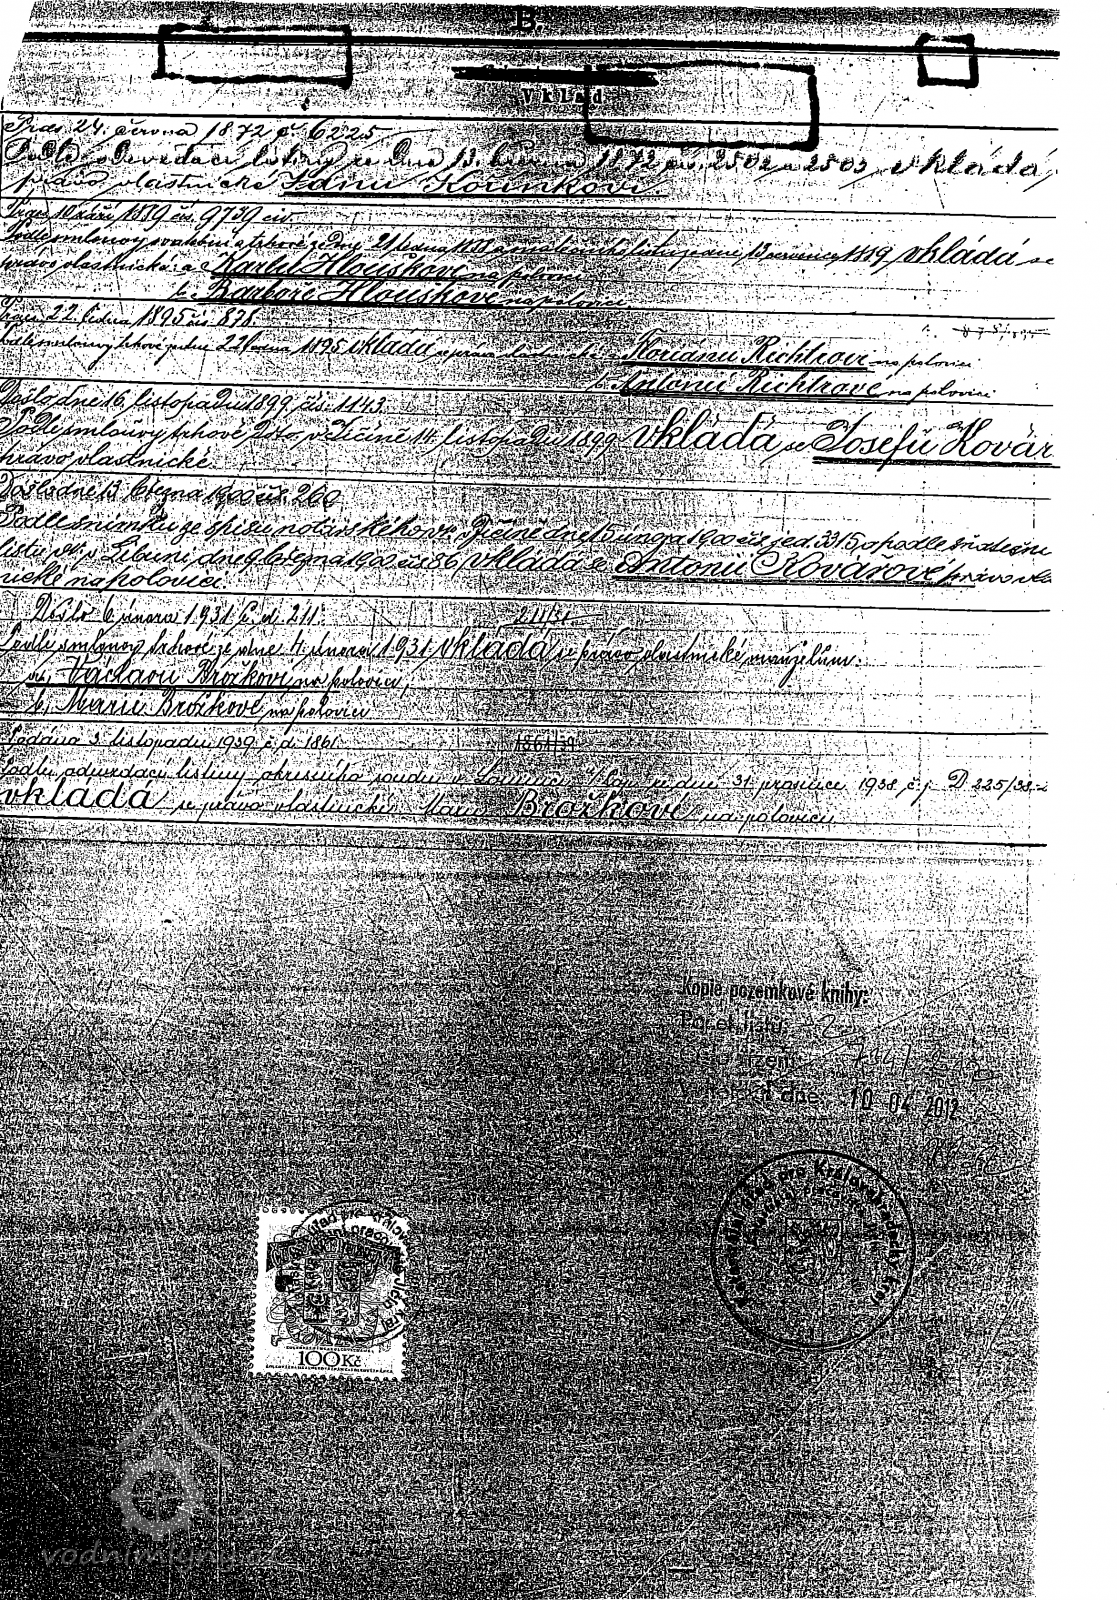 B.
Vklad
Praes. 24. června 1872 č. 6225
Podle odevzdací listiny ze dne 13. března 1872 čís. 2502 a 2503 vkládá
právo vlastnické Janu Kořínkovi
Praes. 10. září 1889 čís. 9739 civ.
Podle smlouvy svatební a trhové ze dne 21. ledna 1888 a dne 13. července 1889 vkládá se
právo vlastnické: a, Karlu Hlouškovi na polovici
b, Barboře Hlouškové na polovici
Praes. 22. ledna 1895 čís. 878.
Podle smlouvy trhové ze dne 22. ledna 1895 vkládá se právo vlastnické: a, Floriánu Richtrovi na polovici
b, Antonii Richtrové na polovici
Došlo dne 16. listopadu 1899 čís. 1143.
Podle smlouvy trhové dto v Jičíně 14. listopadu 1899 vkládá se Josefu Kovář
právo vlastnické.
Došlo dne 13. března 1900 čís. 260
Podle snímku ze spisu notářského v Jičíně dne 15. února 1900 čís. jed. 3315, a podle
listu v Libuni dne 9. března 1900 čís. 86 vkládá se Antonii Kovářové právo vla
nické na polovici.
Došlo 6. února 1931 č. d. 211.
211/31
Podle smlouvy trhové ze dne 4. února 1931 vkládá se právo vlastnické manželům:
a, Václavu Brožkovi na polovici,
b, Marii Brožkové na polovici
Podáno 3. listopadu 1939 č. d. 1861.
1861/39
Podle odevzdací listiny okresního soudu v Lomnici ze dne 31. prosince 1938 č. j. D 225/38-2
vkládá se právo vlastnické Marii Brožkové na polovici
Kopie pozemkové knihy:
Počet listů: 2
Vyhotovil dne: 10 04 2012
Katastrální úřad pro Královéhradecký kraj
100 Kč
vodnimlyny.cz